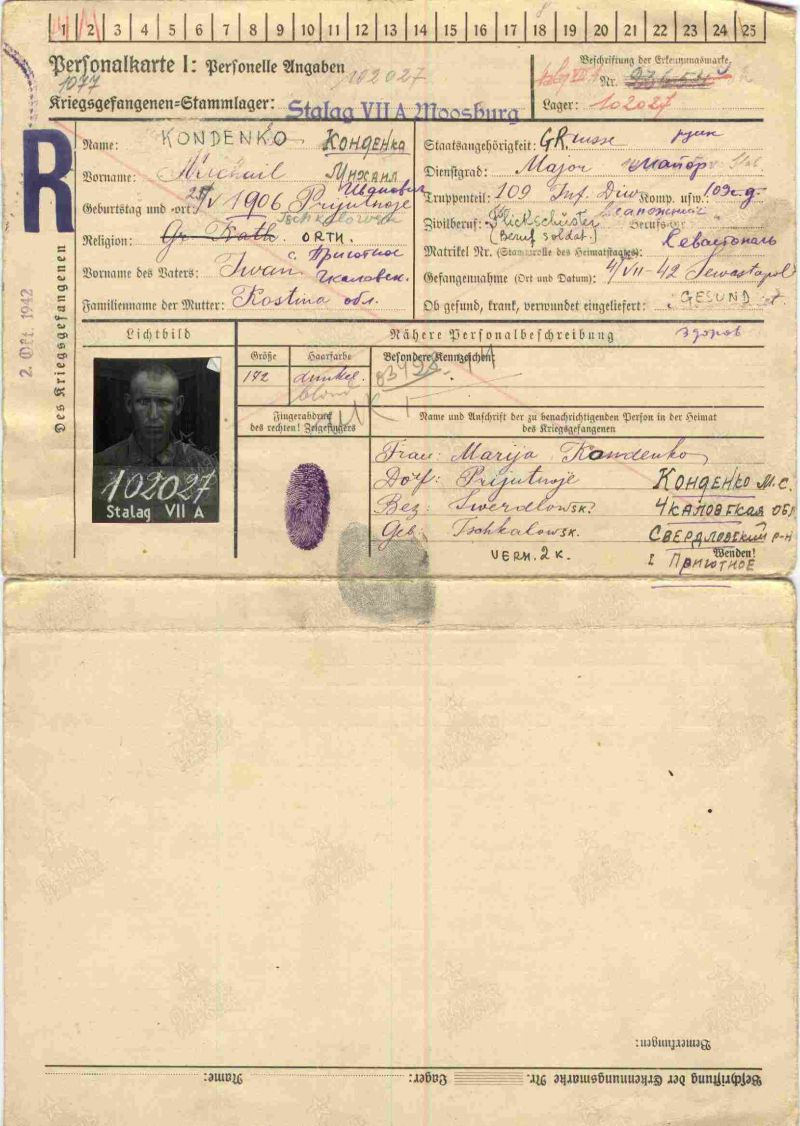 1 2 3 4 5 6 7 8 9 10 11 12 13 14 15 16 17 18 19 20 21 22 23 24 25
Personalkarte I: Personelle Angaben
102027
1077
Beschriftung der Erkennungsmarke
Nr.
Kriegsgefangenen=Stammlager: Stalag VII A Moosburg
Lager: 102027
R
Des Kriegsgefangenen
2. Okt. 1942
Name: KONDENKO Конденко
Vorname: Michail Михаил
Иванович
Geburtstag und -ort: V 1906 Prijutnoje
Tschkalowsk
Religion: Gr. Kath. ORTH.
с. Приютное
Vorname des Vaters: Iwan Чкаловск.
Familienname der Mutter: Kostina обл.
Staatsangehörigkeit: GRusse
Dienstgrad: Major майор
Truppenteil: 109 Inf. Div. Komp. usw.: 109 с.д.
Zivilberuf: Flickschuster Berufs-Gr.
(Beruf soldat.)
Севастополь
Matrikel Nr. (Stammrolle des Heimatstaates):
Gefangennahme (Ort und Datum): 4/VII-42 Sewastopol
Ob gesund, krank, verwundet eingeliefert: GESUND
здоров
Lichtbild
Nähere Personalbeschreibung
Größe
Haarfarbe
Besondere Kennzeichen:
172
dunkel.
blond
Fingerabdruck
des rechten! Zeigefingers
Name und Anschrift der zu benachrichtigenden Person in der Heimat
des Kriegsgefangenen
102027
Stalag VII A
Frau: Marija Kondenko
Dorf: Prijutnoje Конденко М.С.
Bez: Swerdlowsk. Чкаловская обл
Geb: Tschkalowsk. Свердловский р-н
Wenden!
VERH. 2 K. Приютное
Bemerkungen:
Beschriftung der Erkennungsmarke Nr. Lager: Name: